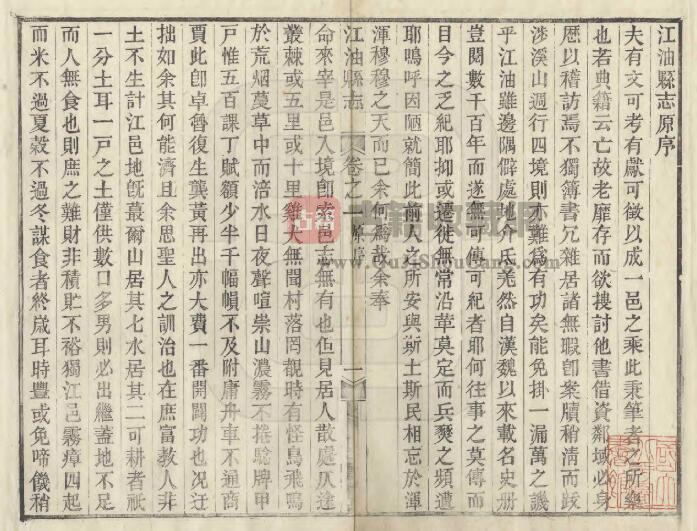 江油縣志原序
夫有文可考有獻可徵以成一邑之乘此秉筆者之所樂
也若典籍云亡故老靡存而欲摟討他書借資鄰域必身
歷以稽訪焉不獨簿書冗雜居諸無暇卽案牘稍清而跋
涉溪山週行四境則亦難爲有功矣能免掛一漏萬之譏
乎江油雖邊隅僻處地介氐羌然自漢魏以來載名史册
豈閱數千百年而遂無可傳可紀者耶何往事之莫傳而
目今之乏紀耶抑或遷徙無常沿革莫定而兵燹之頻遭
耶嗚呼因陋就簡此前人之所安與斯土斯民相忘於渾
渾穆穆之天而已余何爲哉余奉
江油縣志 卷之一 原序 一
命來宰是邑入境卽索邑志無有也但見居人散處仄逵
叢棘或五里或十里雞犬無聞村落罔覩時有怪鳥飛鳴
於荒烟蔓草中而涪水日夜聲喧崇山濃霧不捲騐牌甲
戸惟五百課丁賦額少半千幅幀不及附庸舟車不通商
賈此卽卓魯復生龔黃再出亦大費一番開闢功也况迂
拙如余其何能濟且余思聖人之訓治也在庶富教人非
土不生計江邑地旣蕞爾山居其七水居其二可耕者祇
一分土耳一戸之土僅供數口多男則必出繼蓋地不足
而人無食也則庶之難財非積貯不裕獨江邑霧瘴四起
而米不過夏穀不過冬謀食者終歲耳時豐或免啼饑稍
古籍
www.GuJiShouCang.com